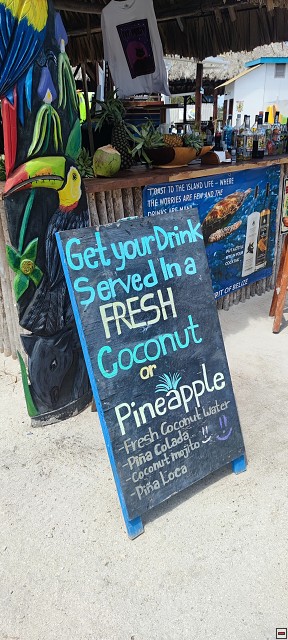 "TOAST TO THE ISLAND LIFE - WHERE
THE WORRIES ARE FEW AND THE
DRINKS ARE MANY"
SPIRIT OF BELIZE
Get your Drink
Served In a
FRESH
Coconut
or
Pineapple
-Fresh Coconut Water
-Piña Colada
-Coconut mojito
-Piña Loca